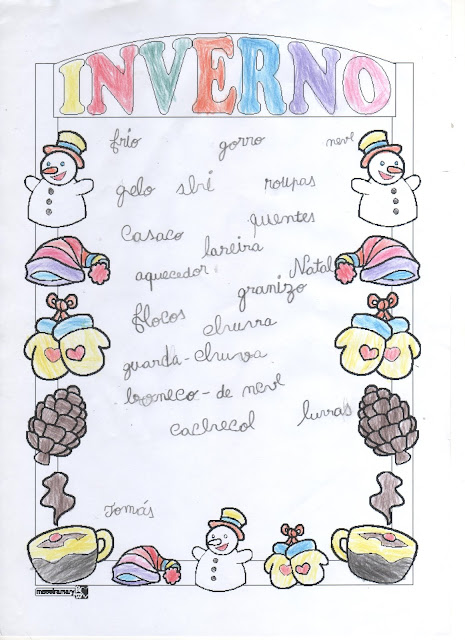 INVERNO
frio gorro neve
gelo ski roupas
casaco quentes
lareira
aquecedor Natal
granizo
flocos chuva
guarda-chuva
boneco-de neve
cachecol luvas
Tomás